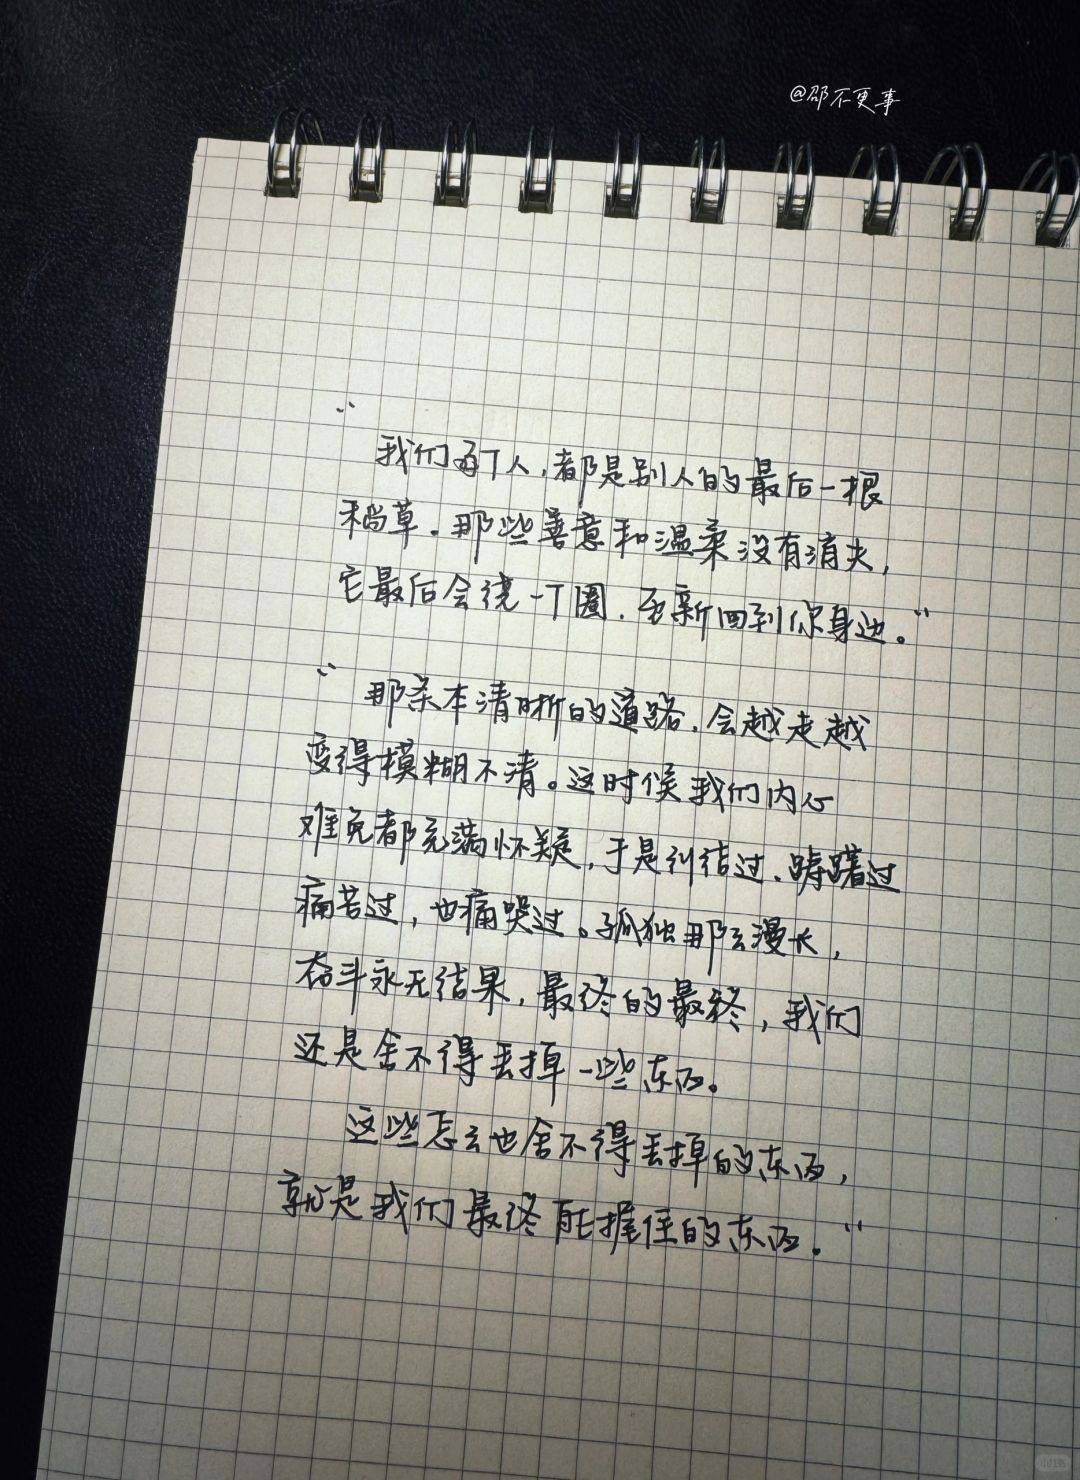 @邵不更事
“
我们每个人,都是别人的最后一根
稻草.那些善意和温柔没有消失,
它最后会绕一个圈,重新回到你身边。”
“那条本清晰的道路,会越走越
变得模糊不清。这时候我们内心
难免都充满怀疑,于是纠结过、踌躇过
痛苦过,也痛哭过。孤独那么漫长,
奋斗永无结果,最终的最终,我们
还是舍不得丢掉一些东西。
这些怎么也舍不得丢掉的东西,
就是我们最终能握住的东西。”
小红书